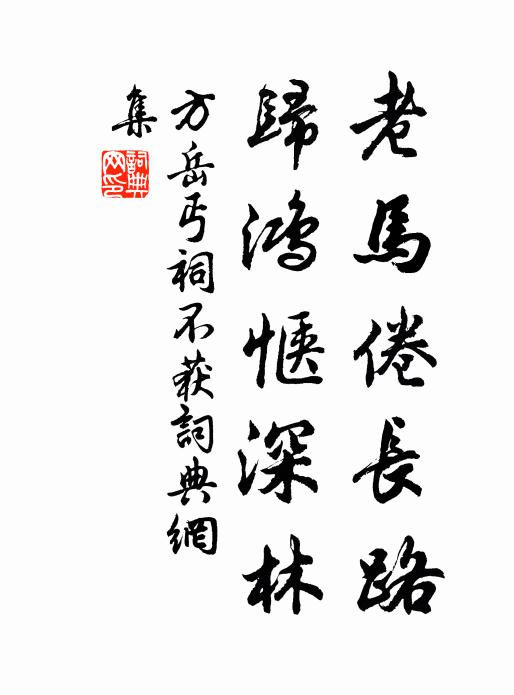 老馬倦長路
歸鴻愜深林
方岳丐祠不获詞典網
集
詞典
网印